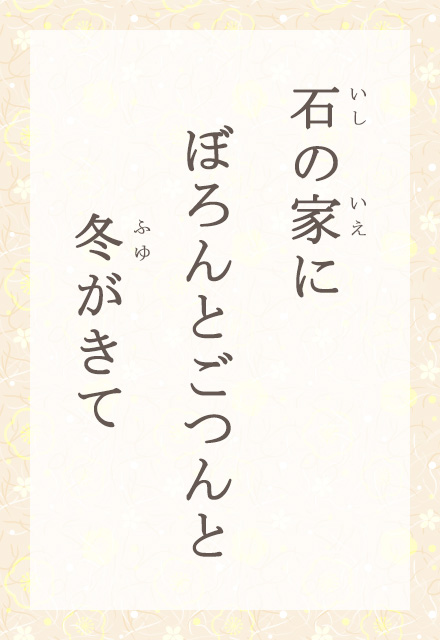 石の家に
ぼろんとごつんと
冬がきて
いし
いえ
ふゆ